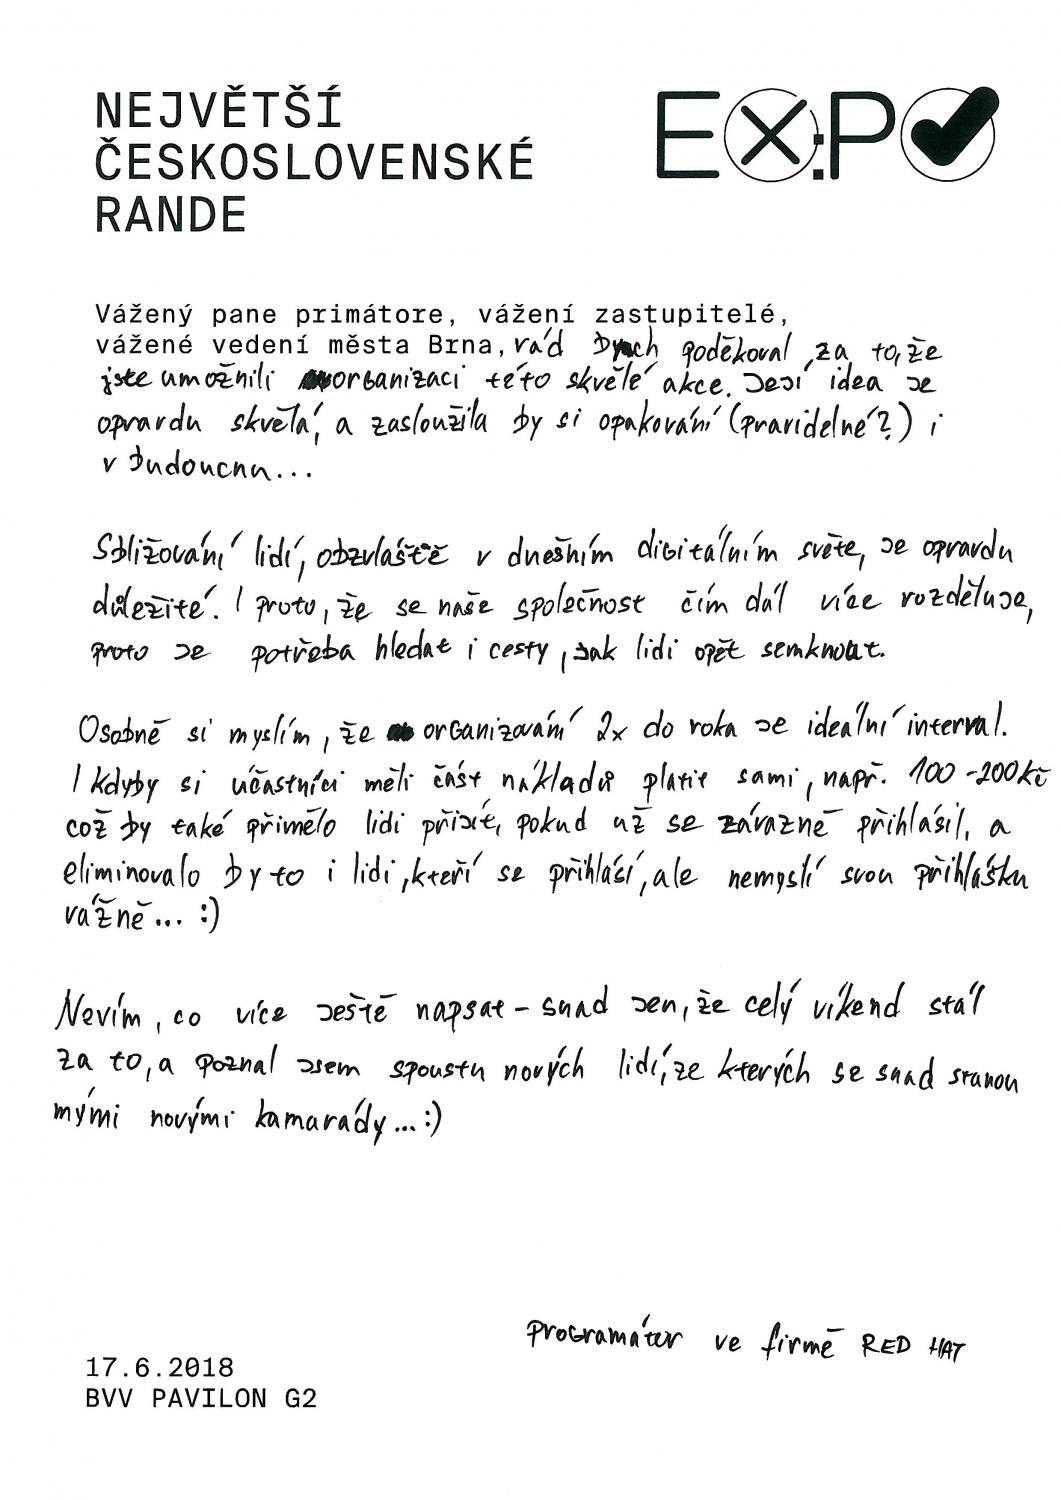 NEJVĚTŠÍ
ČESKOSLOVENSKÉ
RANDE
EX:PO
Vážený pane primátore, vážení zastupitelé,
vážené vedení města Brna, rád bych poděkoval, za to, že
jste umožnili organizaci této skvělé akce. Její idea je
opravdu skvělá, a zasloužila by si opakování (pravidelné?) i
v budoucnu...
Sbližování lidí, obzvláště v dnešním digitálním světe, je opravdu
důležité. I proto, že se naše společnost čím dál více rozděluje,
proto je potřeba hledat i cesty, jak lidi opět semknout.
Osobně si myslím, že organizování 2x do roka je ideální interval.
I kdyby si účastníci měli část nákladů platit sami, např. 100-200kč
což by také přimělo lidi přijít, pokud už se závazně přihlásil, a
eliminovalo by to i lidi, kteří se přihlásí, ale nemyslí svou přihlášku
vážně... :)
Nevím, co více ještě napsat - snad jen, že celý víkend stál
za to, a poznal jsem spoustu nových lidí, ze kterých se snad stanou
mými novými kamarády...:)
programátor ve firmě RED HAT
17.6.2018
BVV PAVILON G2